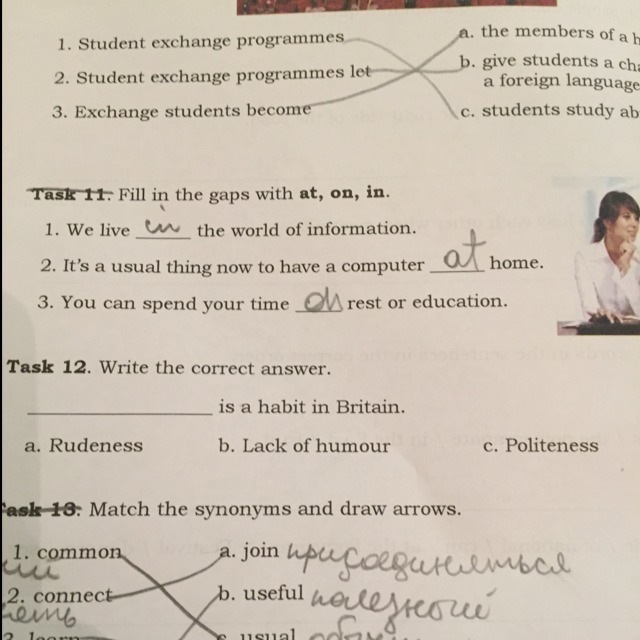 1. Student exchange programmes
a. the members of a h
2. Student exchange programmes let
b. give students a cha
a foreign language
3. Exchange students become
c. students study ab
Task 11. Fill in the gaps with at, on, in.
1. We live in the world of information.
2. It's a usual thing now to have a computer at home.
3. You can spend your time on rest or education.
Task 12. Write the correct answer.
is a habit in Britain.
a. Rudeness b. Lack of humour c. Politeness
Task 13. Match the synonyms and draw arrows.
1. common a. join присоединяться
2. connect b. useful полезной
3. learn c. usual